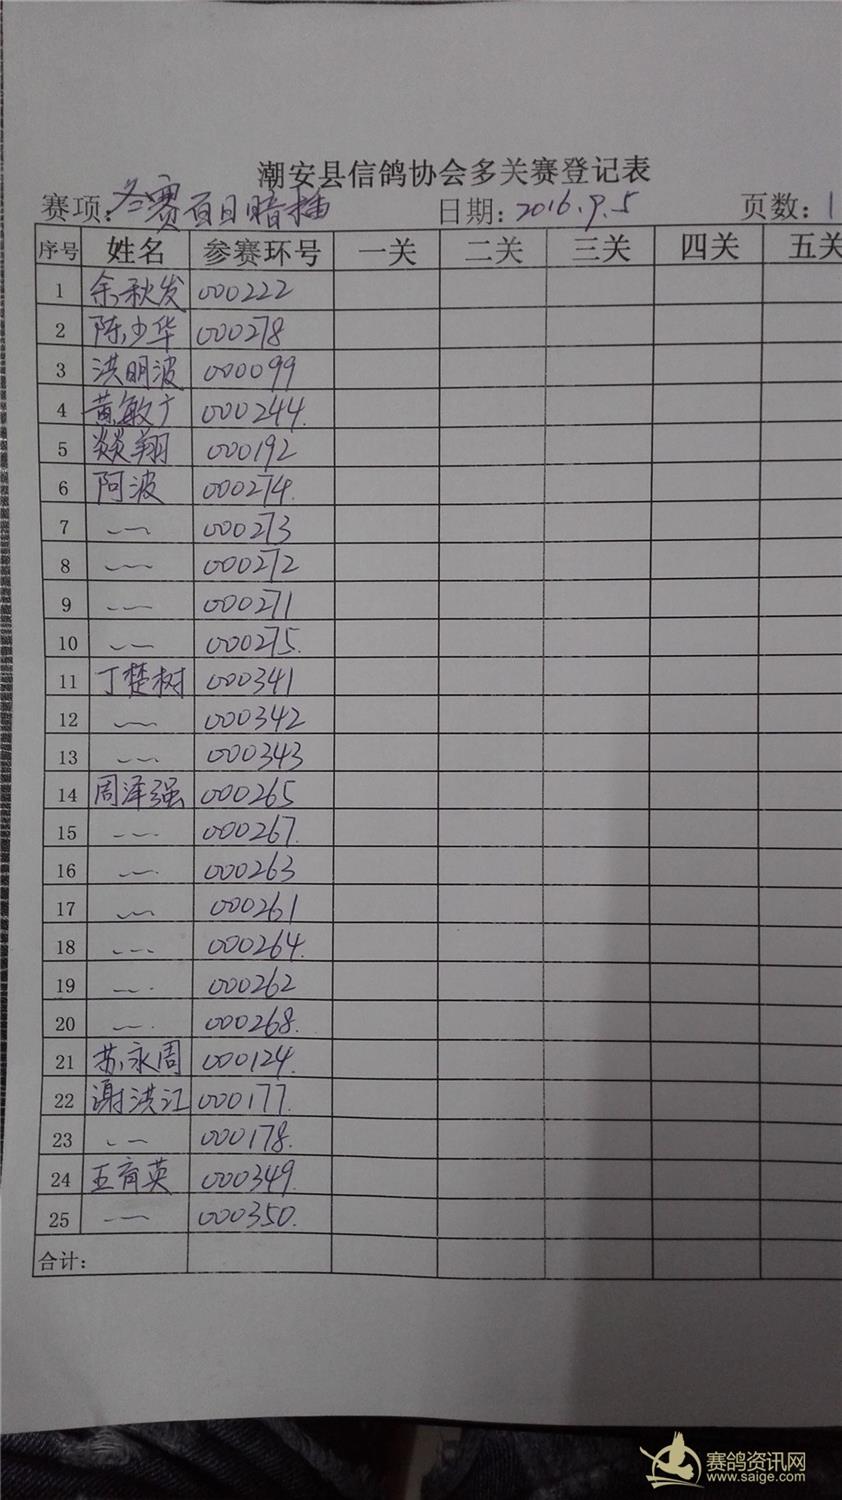 潮安县信鸽协会多关赛登记表
赛项:冬赛百日暗插 日期:2016.9.5 页数:1
序号 姓名 参赛环号 一关 二关 三关 四关 五关
1 余秋发 000222
2 陈少华 000278
3 洪明波 000099
4 黄敏广 000244.
5 燚翔 000192
6 阿波 000274.
7 〃 000273
8 〃 000272
9 〃 000271
10 〃 000275.
11 丁楚树 000341
12 〃 000342
13 〃 000343
14 周泽强 000265
15 〃 000267.
16 〃 000263
17 〃 000261
18 〃 000264.
19 〃 000262
20 〃 000268.
21 苏永周 000124.
22 谢洪江 000177.
23 〃 000178.
24 王育英 000349.
25 〃 000350.
合计:
赛鸽资讯网
www.saige.com